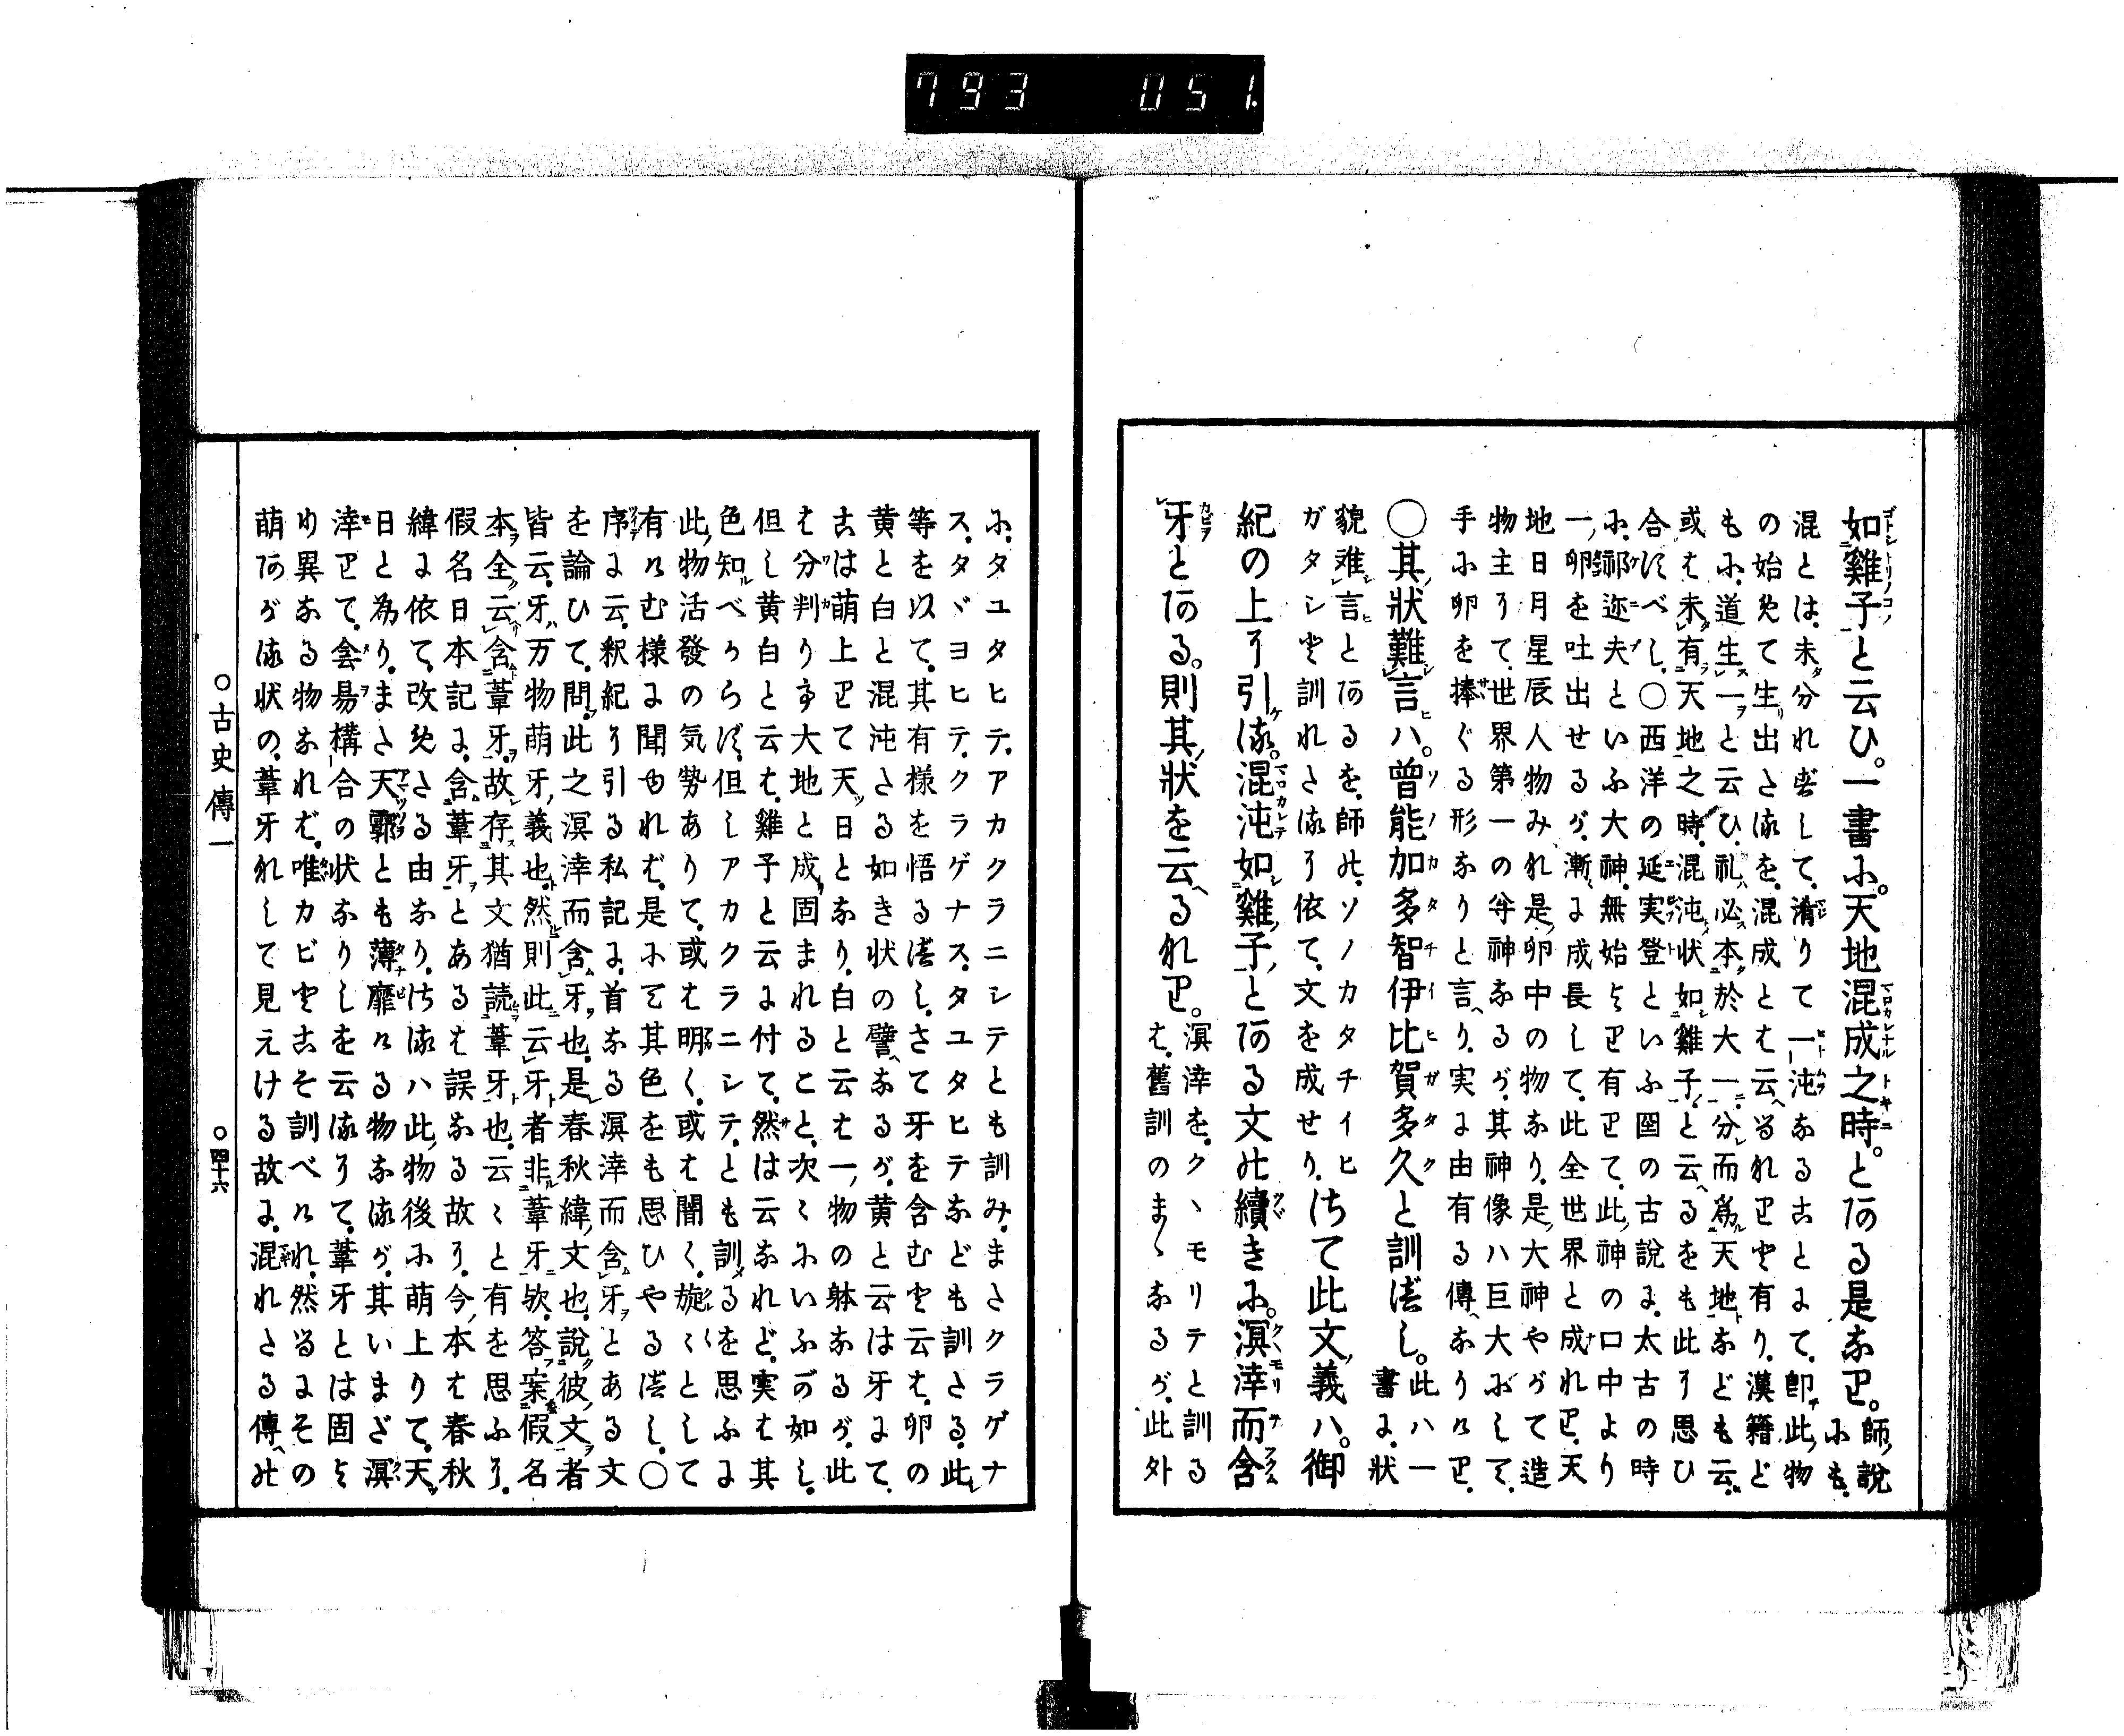 793 051.
如雞子と云ひ。一書に。天地混成之時。とある是なり。師説にも、
混とは、未分れずして、淆りて一沌なることにて、即此物
の始めて生出たるを、混成とは云るなりと有り、漢籍ど
もに、道生一と云ひ、礼必本於大一、分而為天地など も云、
或は未有天地之時、混沌状如雞子、と云るをも此に思ひ
合すべし、〇西洋の延実登といふ国の古説に、太古の時
に、祁迩夫といふ大神、無始より有りて、此神の口中より
一卵を吐出せるが、漸に成長して、此全世界と成れり、天
地日月星辰人物みな是卵中の物なり、是大神やがて造
物主にて、世界第一の尊神なるが、其神像ハ巨大にして、
手に卵を捧ぐる形なりと言り、実に由有る傳なりけり、
〇其狀難言ハ。曽能加多智伊比賀多久と訓べし。此ハ一書に、狀
貌難言とあるを、師の、ソノカタチイヒ
ガタシと訓れたるに依て、文を成せり、さて此文義ハ。御
紀の上に引る。混沌如雞子、とある文の續きに。溟涬而含
牙とある。則其狀を云へるなり。溟涬を、クヽモリテと訓る
は、舊訓のまゝなるが、此外
に、タユタヒテ、アカクラニシテとも訓み、またクラゲナ
ス、タヾヨヒテ、クラゲナス、タユタヒテなども訓たる、此
等を以て、其有様を悟るべし、さて牙を含むと云は、卵の
黄と白と混沌たる如き状の譬なるが、黄と云は牙にて、
こは萌上りて天日となり、白と云は一物の躰なるが、此
は分判り亭大地と成、固まれること、次々にいふが如し、
但し黄白と云は、雞子と云に付て、然は云なれど、実は其
色知べからず、但しアカクラニシテ、とも訓るを思ふに
此物活發の気勢ありて、或は明く、或は闇く、旋くとして
有けむ様に聞ゆれば、是にて其色をも思ひやるべし、〇
序に云、釈紀に引る私記に、首なる溟涬而含牙とある文
を論ひて、問、此之溟涬而含牙也、是春秋緯文也、説彼文者
皆云、牙万物萌牙義也、然則此云牙者非葦牙歟、答、案假名
本全云含葦牙、故存其文猶読葦牙也、云々と有を思ふに、
假名日本記に、含葦牙とあるは誤なる故に、今本は春秋
緯に依て、改めたる由なり、さるハ此物後に萌上りて、天
日と為り、また天霏とも薄靡ける物なるが、其いまだ溟
涬りて、含易構合の状なりしを云るにて、葦牙とは固より
異なる物なれば、唯カビとこそ訓べけれ、然るにその
萌あがる状の、葦牙なして見えける故に、混れたる傳の
〇古史傳一　〇四十六